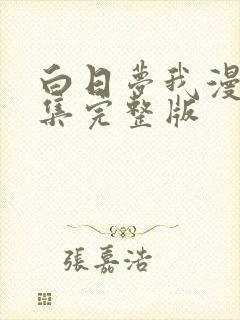 白日夢我漫
集完整版
張嘉浩